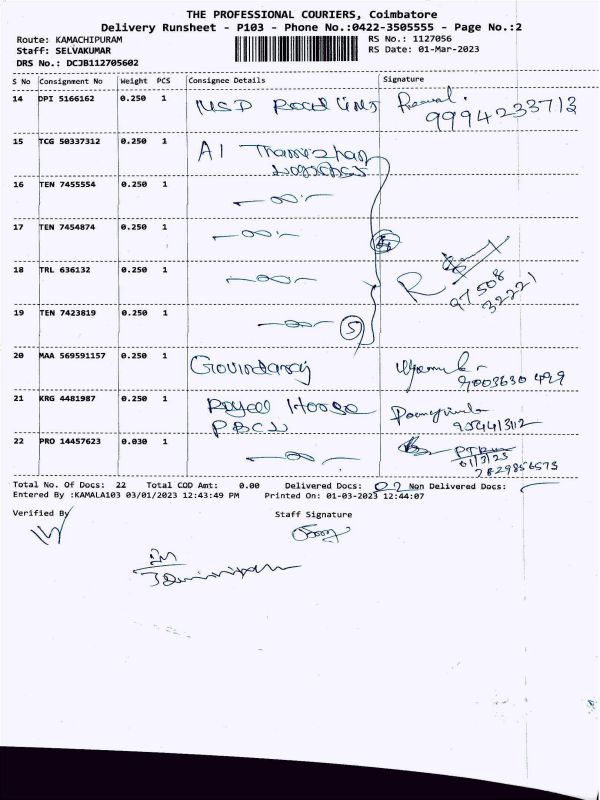 THE PROFESSIONAL COURIERS, Coimbatore
Delivery Runsheet - P103 - Phone No.:0422-3505555 - Page No.:2
Route: KAMACHIPURAM
RS No.: 1127056
Staff: SELVAKUMAR
RS Date: 01-Mar-2023
DRS No.: DCJB112705602
S No Consignment No Weight PCS Consignee Details Signature
14 DPI 5166162 0.250 1 MSD Road lines
9994233713
15 TCG 50337312 0.250 1 A1
16 TEN 7455554 0.250 1
17 TEN 7454874 0.250 1
18 TRL 636132 0.250 1
97508
32221
19 TEN 7423819 0.250 1 5
20 MAA 569591157 0.250 1 Govindaraj
9003630499
21 KRG 4481987 0.250 1 Royal House
22 PRO 14457623 0.030 1
Total No. Of Docs: 22 Total COD Amt: 0.00 Delivered Docs: 22 Non Delivered Docs:
Entered By :KAMALA103 03/01/2023 12:43:49 PM Printed On: 01-03-2023 12:44:07
Verified By
Staff Signature